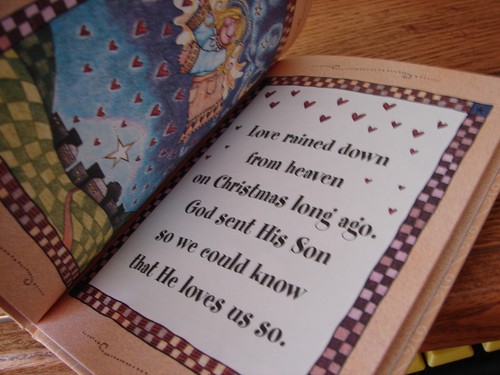 Love rained down
from heaven
on Christmas long ago.
God sent His Son
so we could know
that He loves us so.